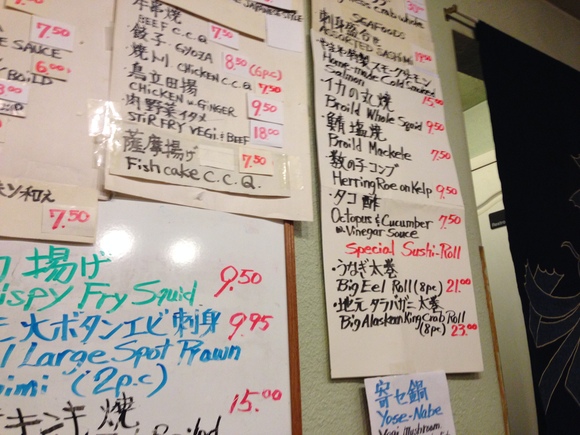 7.50
SAUCE
6.00
BOILD
ン和え
7.50
JAPANESE STYLE
牛串焼
7.50
BEEF C.C.Q.
餃子 GiYOZA 8.50 (6pc)
焼トリ CHICKEN C.C.Q 7.50
鳥立田揚
CHICKEN w. GINGER 9.50
肉野菜イタメ
STIR FRY VEGI. & BEEF 18.00
薩摩揚げ 7.50
Fish cake C.C.Q.
揚げ
Crispy Fry Squid 9.50
大ボタンエビ刺身 9.95
Large Spot Prawn
(2p.c)
キンキ焼 15.00
SEAFOODS
刺身盛合せ
ASSORTED SASHIMI
スモークサーモン
Home-made Cold Smoked
Salmon 15.00
・イカの丸焼
Broild Whole Squid 9.50
・鯖塩焼
Broild Mackele 7.50
・数の子コンブ
Herring Roe on Kelp 9.50
・タコ酢
Octopus & Cucumber 7.50
w. Vinegar Sauce
Special Sushi-Roll
・うなぎ太巻
Big Eel Roll (8pc) 21.00
・地元タラバガニ太巻
Big Alaskan King Crab Roll
(8pc) 23.00
寄セ鍋
Yose-Nabe
Vegi. mushroom